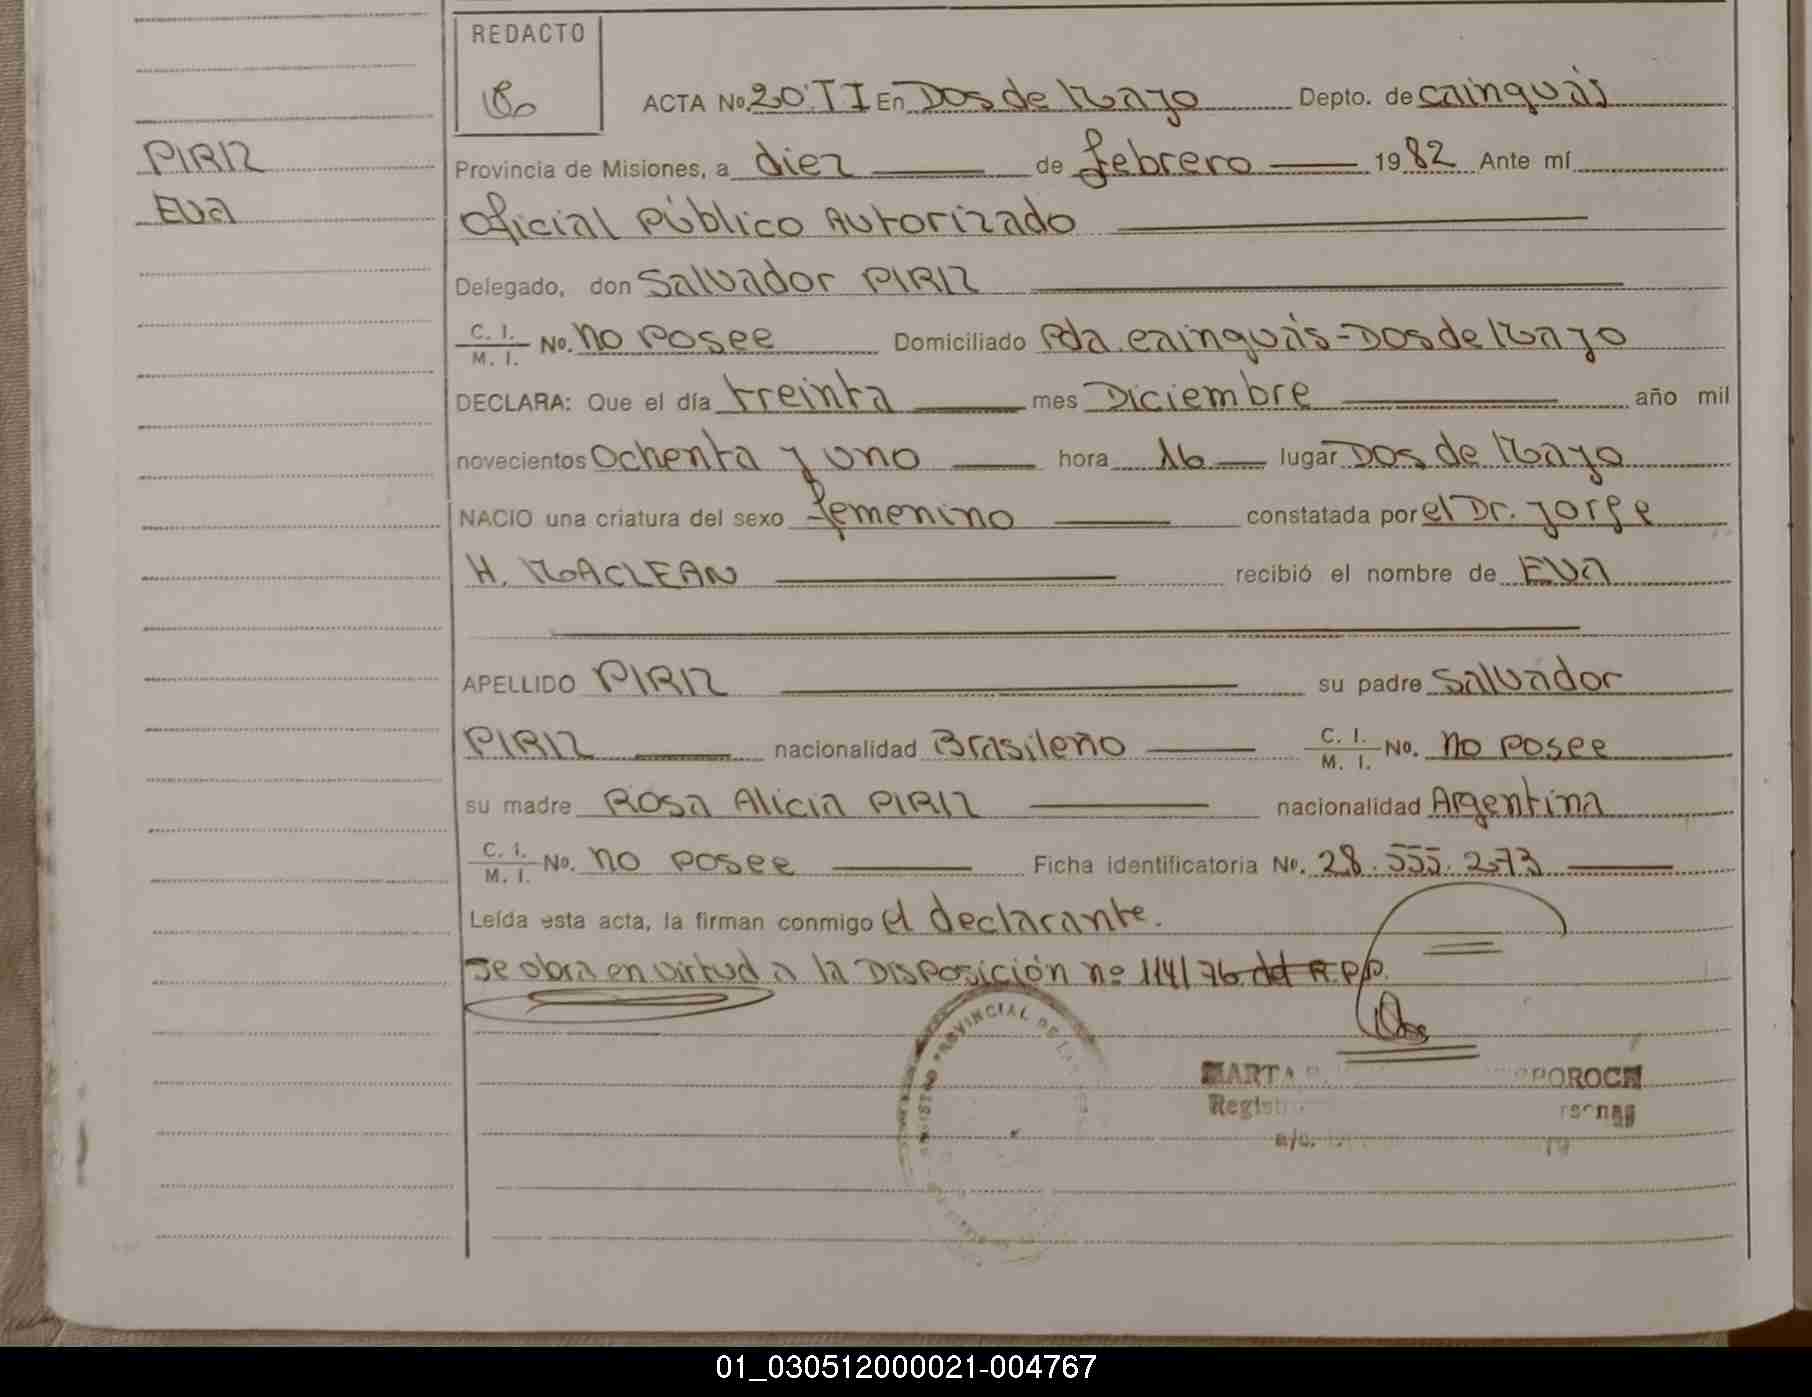 REDACTO
ACTA No. 20·II En Dos de Mayo Depto. de Cainguás
PIRIZ
EVA
Provincia de Misiones, a diez de febrero 1982 Ante mí
Oficial Público Autorizado
Delegado, don Salvador PIRIZ
C. I. / M. I. No. no posee Domiciliado Pda. Cainguás-Dos de Mayo
DECLARA: Que el día treinta mes Diciembre año mil
novecientos ochenta y uno hora 16 lugar Dos de Mayo
NACIO una criatura del sexo femenino constatada por el Dr. Jorge
H. MACLEAN recibió el nombre de EVA
APELLIDO PIRIZ su padre Salvador
PIRIZ nacionalidad Brasileño C. I. / M. I. No. no posee
su madre Rosa Alicia PIRIZ nacionalidad Argentina
C. I. / M. I. No. no posee Ficha identificatoria No. 28.555.273
Leída esta acta, la firman conmigo el declarante.
Se obra en virtud a la Disposición nº 114/76 del R.P.P.
PROVINCIAL DE LA
MARTA
01_030512000021-004767